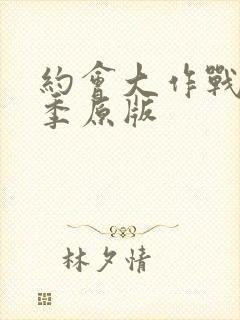 約會大作戰
季原版
林夕情